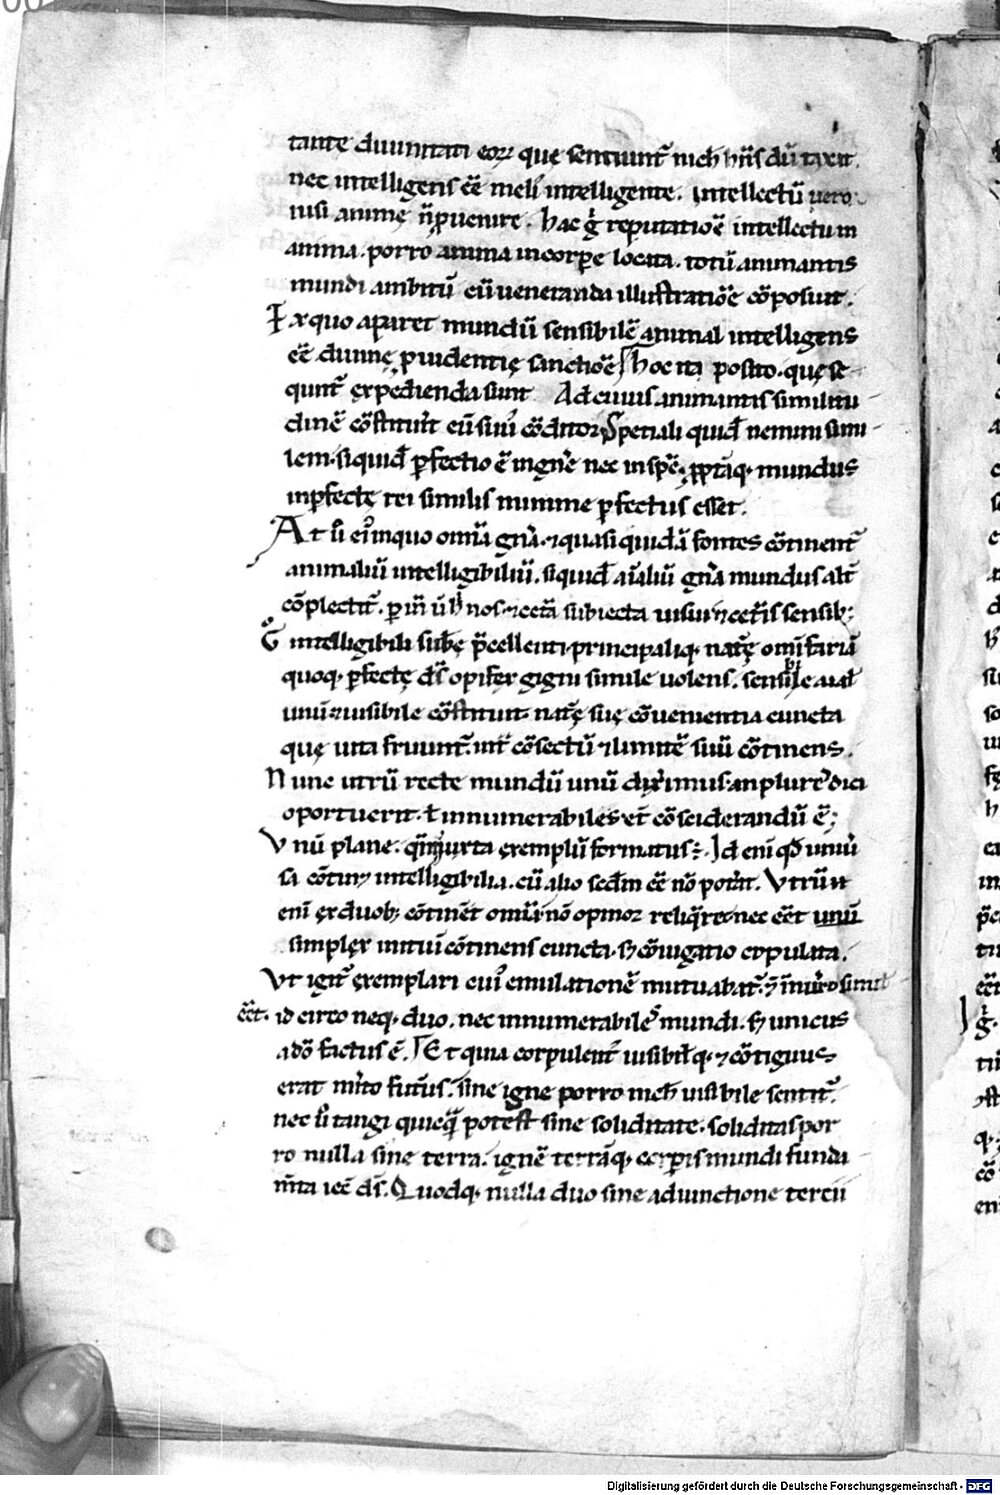 tantę diuinitati eoꝝ quę sentiunt᷑ nich̅ hn̅s du̅ taxat.
nec intelligens ee̅ meli᷒ intelligente. Intellectu̅ uero
nisi animę n̅ ꝓuenire. hac g̊ reputatio̅e intellectu in
anima. porro anima in corꝑe locata. totu̅ animantis
mundi ambitu̅ cu̅ ueneranda illustratio̅e co̅posuit.
Ex quo aparet mundu̅ sensibile̅ animal intelligens
ee̅ diuinę ꝓuidentię sanctio̅e. hoc ita posito. quę se
qunt᷑ exꝑedienda sunt. Ad cuius animantis similitu
dine̅ co̅stituerit eu̅ suu᷒ co̅ditor. Spetiali quid̅ nemini simi
lem. siquid̅ ꝑfectio e̅ in gn̅e nec in spe̅. ꝓptaq; mundus
inꝑfectę rei similis minime ꝑfectus esset.
At u᷒ ei᷒ in quo omi̅a gn̅a. ⁊ quasi quida̅ fontes co̅tinent᷑
animaliu̅ intelligibiliu̅. siquid̅ ai̅aliu̅ gn̅a mundus alt᷑
co̅plectit᷑. ꝑ in̅ u̅ h̅ nos ⁊ cet̅a subiecta uisui ⁊ cet̅is sensib;
G̊ intelligibili subę p̅cellenti principaliq; nat᷑ę omi̅faria̅
quoq; ꝑfectę ds̅ opifex gigni simile uolens. sensibile aial̅
unu̅ ⁊ uisibile co̅stituit. nat᷑ę suę co̅uenientia cuncta
quę uita fruunt᷑. int᷑ co̅sectu̅ ⁊ limite̅ suu̅ co̅tinens.
Nunc utru̅ recte mundu̅ unu̅ dixerimus. an plures dici
oportuerit. ł innumerabiles et᷑ co̅sciderandu̅ e̅;
Vnu̅ plane. qm̅ iuxta exemplu̅ formatus ÷. Id eni̅ qd̅ uniu᷑
sa co̅tin; intelligibilia. cu̅ alio sed̅m ee̅ no̅ pot᷑it. Vtru̅ nt
eni̅ ex duob; co̅tine̅t omi̅a no̅ opinor reliq̅ret. nec ee̅t unu̅
simplex initui̅ co̅tinens cuncta. s; co̅iugatio copulata.
Vt igit᷑ exemplari cui᷒ emulatione̅ mutuabat᷑. i̅ nu̅o simil᷑
ee̅t. id circo neq; duo. nec innumerabiles mundi. s; unicus
a do̅ factus e̅. Et quia corpulent᷒ uisibilq; ⁊ co̅tiguus
erat m̅ito futur᷒us. sine igne porro nich̅ uisibile sentit᷑.
nec u᷒ tangi quicq̅ potest sine soliditate. soliditas por
ro nulla sine terra. igne̅ terra̅q; corꝑis mundi funda
m̅ta iec̅ ds̅. Quodq; nulla duo sine adiunctione tercii